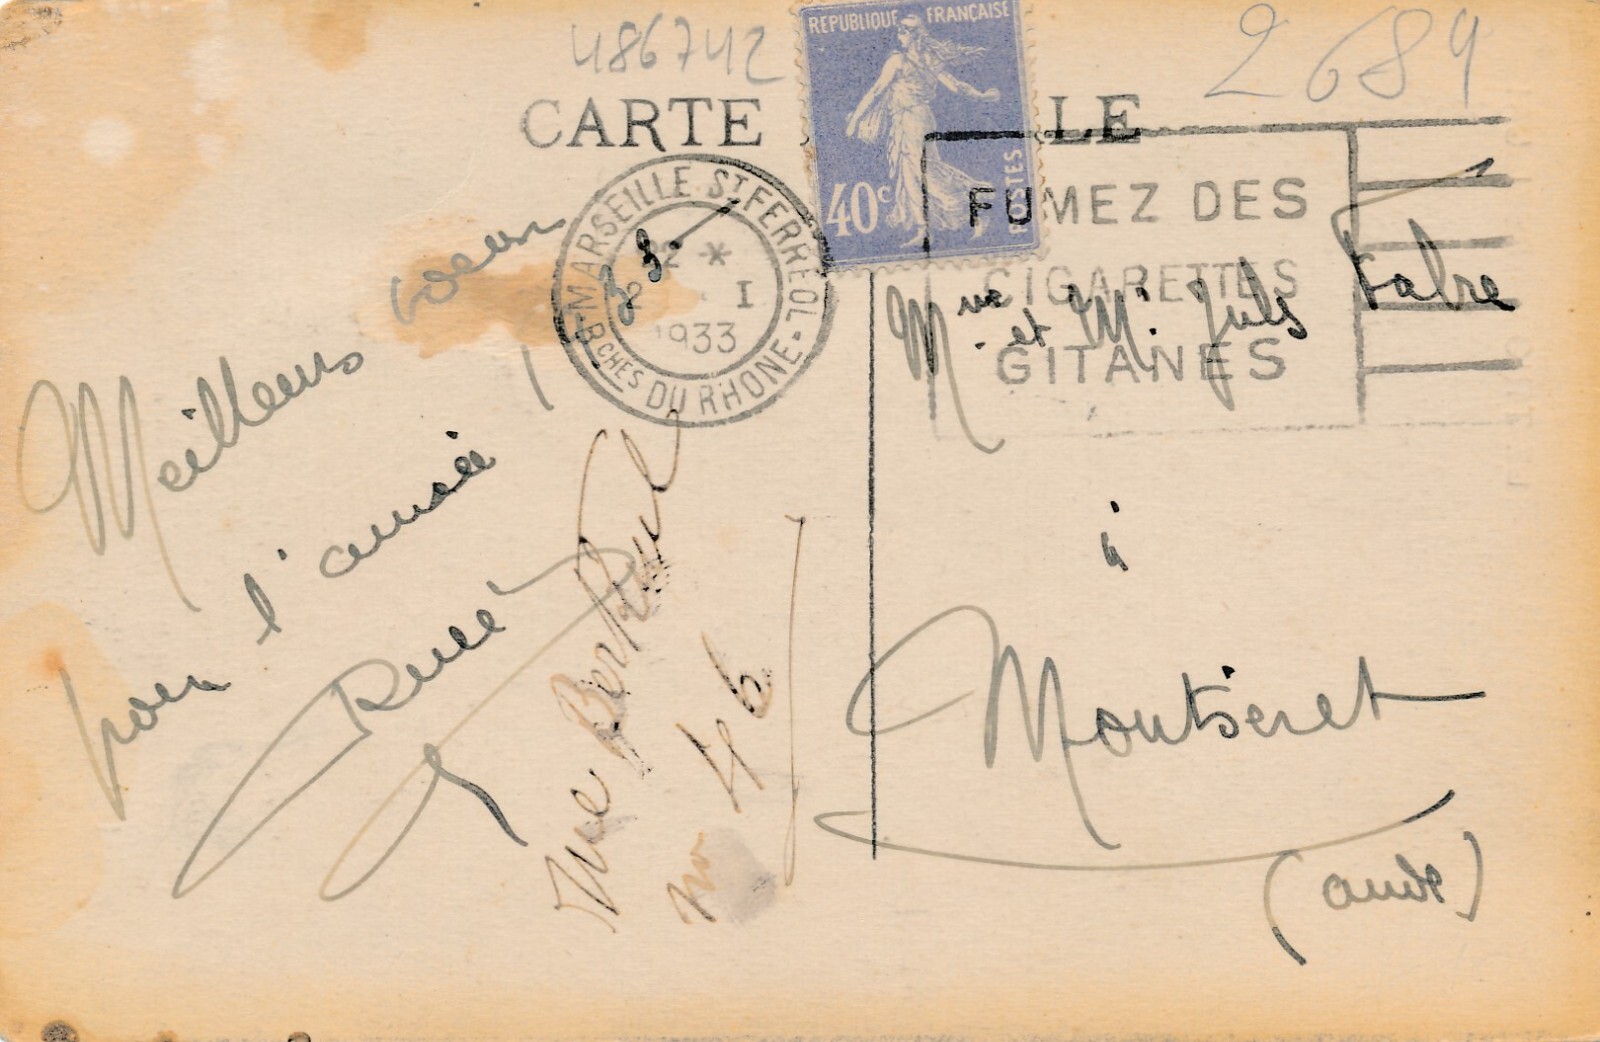 486742
2689
RÉPUBLIQUE FRANÇAISE
40c POSTES
CARTE LE
MARSEILLE ST FERRÉOL
I
1933
BCHES DU RHONE
FUMEZ DES
CIGARETTES
GITANES
Meilleurs voeux
pour l'année 1933
René
Rue
no 46
Mme et M. Jules Fabre
à
Montséret
(aude)